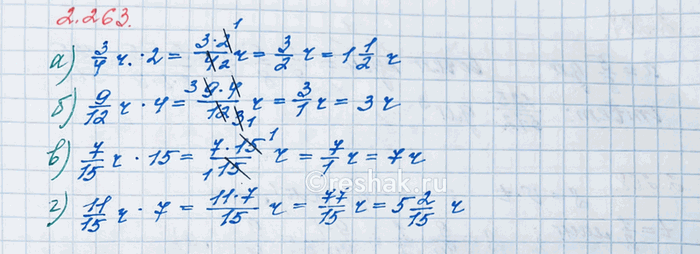 2.263.
а) 3/4 ч. · 2 = 3·2/4 2 1 ч = 3/2 ч = 1 1/2 ч
б) 9/12 ч · 4 = 3 9·4/12 3 1 ч = 3/1 ч = 3 ч
в) 7/15 ч · 15 = 7·15 1/1 15 ч = 7/1 ч = 7 ч
г) 11/15 ч · 7 = 11·7/15 ч = 77/15 ч = 5 2/15 ч
©reshak.ru